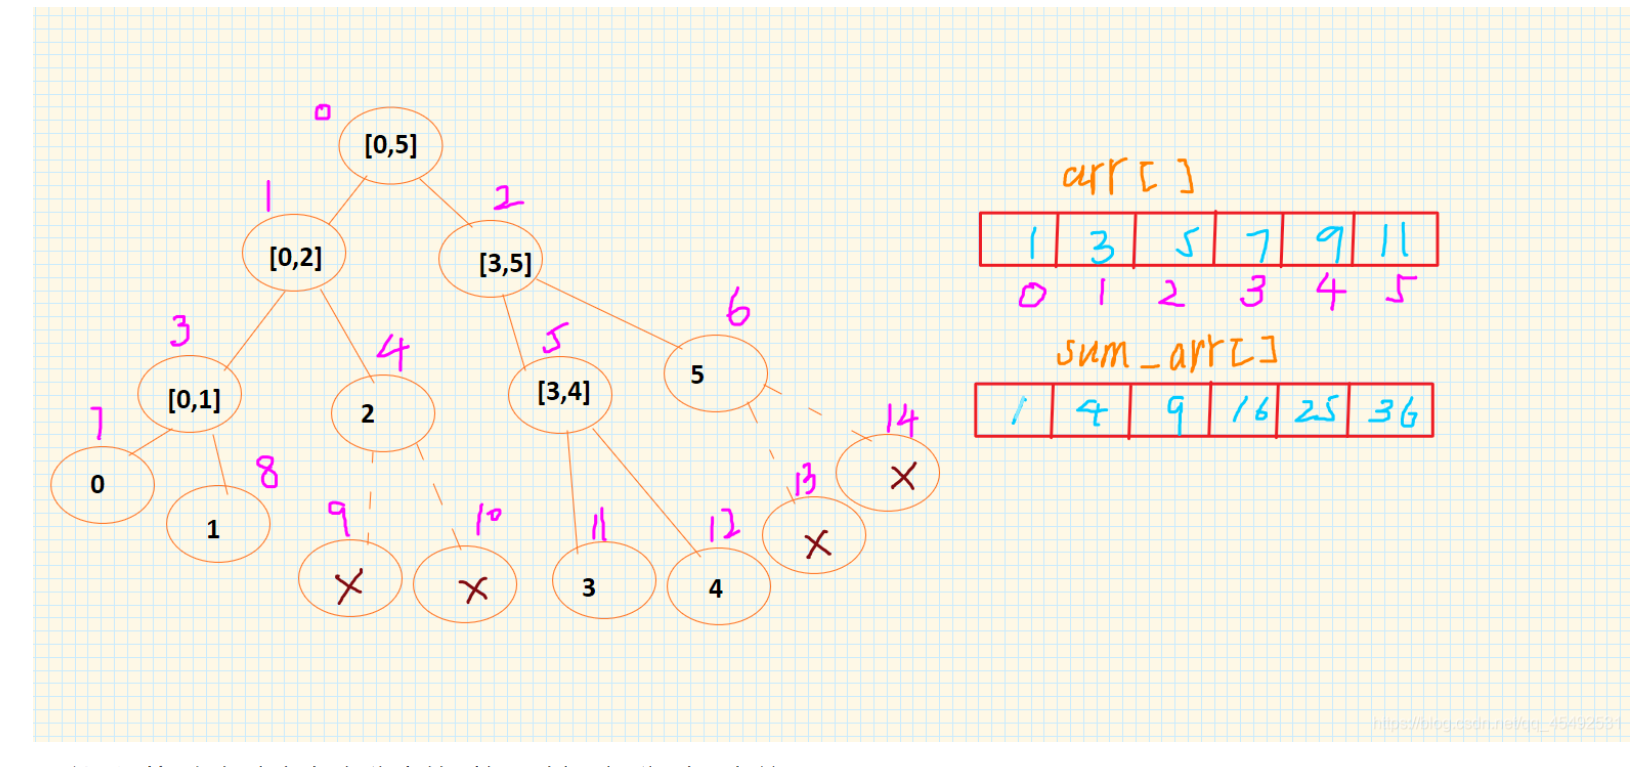 0
[0,5]
1
2
[0,2]
[3,5]
3
4
5
6
[0,1]
2
[3,4]
5
7
8
0
1
9
10
11
12
13
14
X
X
3
4
X
X
arr[ ]
1 3 5 7 9 11
0 1 2 3 4 5
sum_arr[ ]
1 4 9 16 25 36
https://blog.csdn.net/qq_45492531